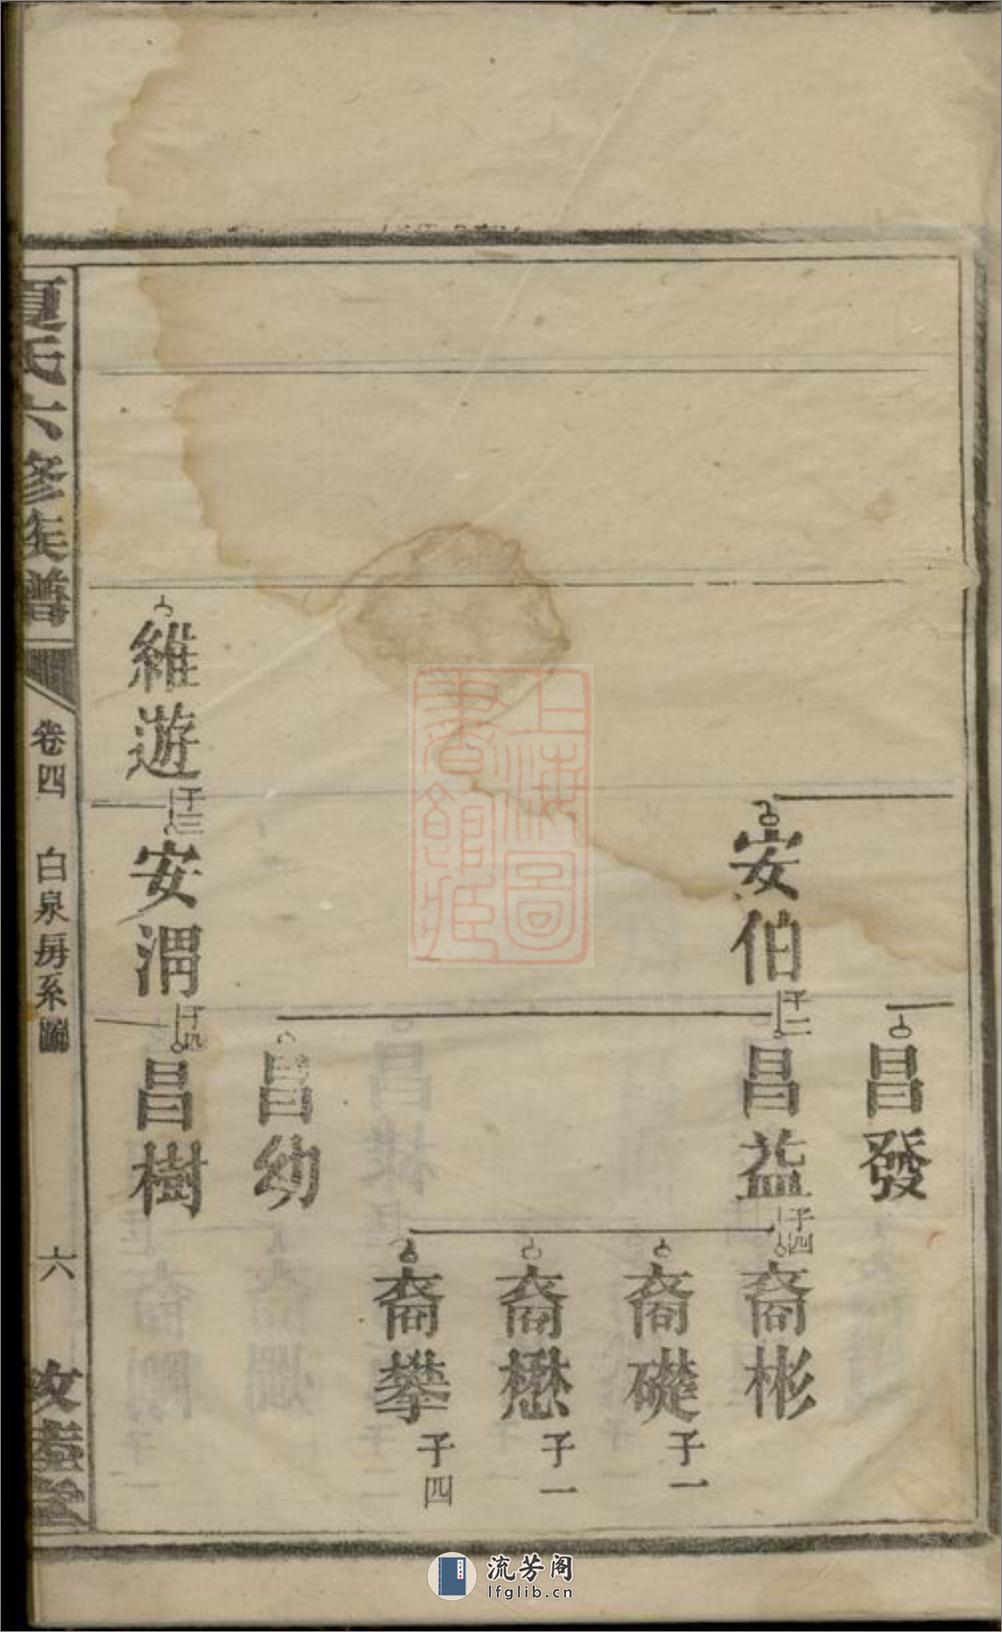 昌發
安伯 子二
昌益 子四
裔彬
裔礎 子一
裔懋 子一
裔攀 子四
昌幼
維遊 子三
安渭 子四
昌樹
夏氏六修族譜
卷四
白泉房系圖
六
上海圖書館藏
流芳阁
lfglib.cn